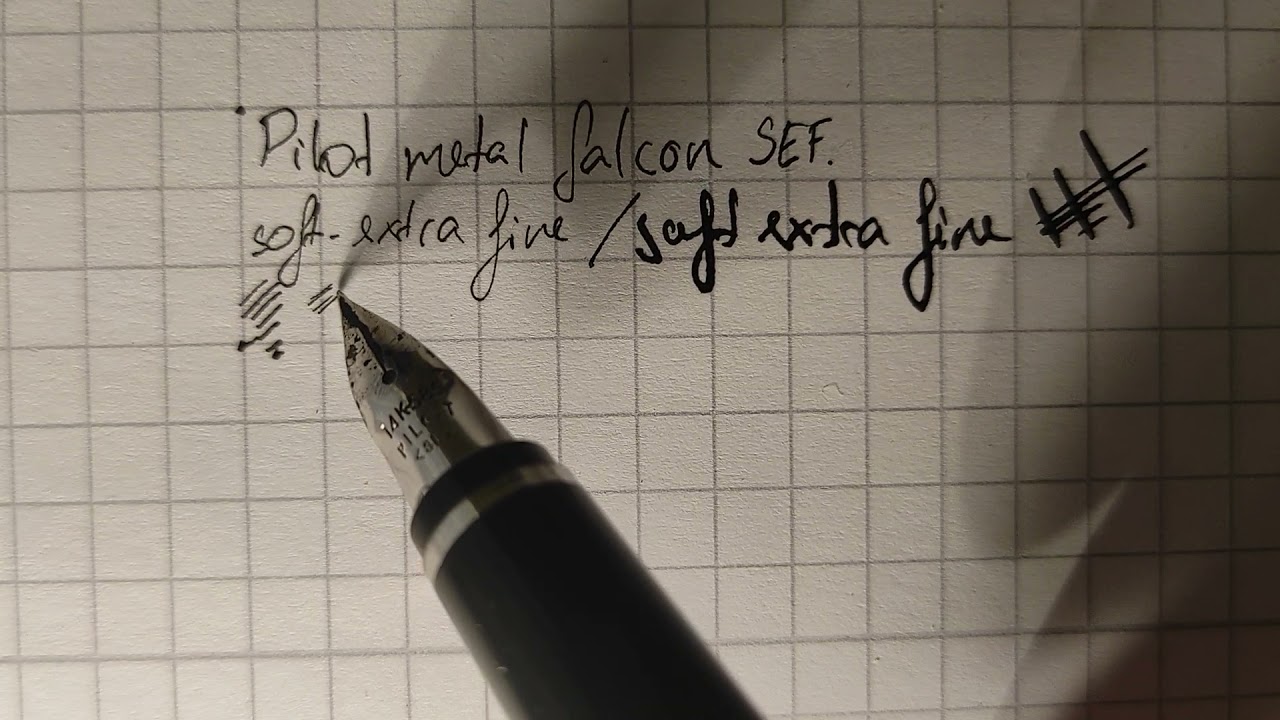 Pilot metal falcon SEF.
soft-extra fine / soft extra fine
14K
PILOT